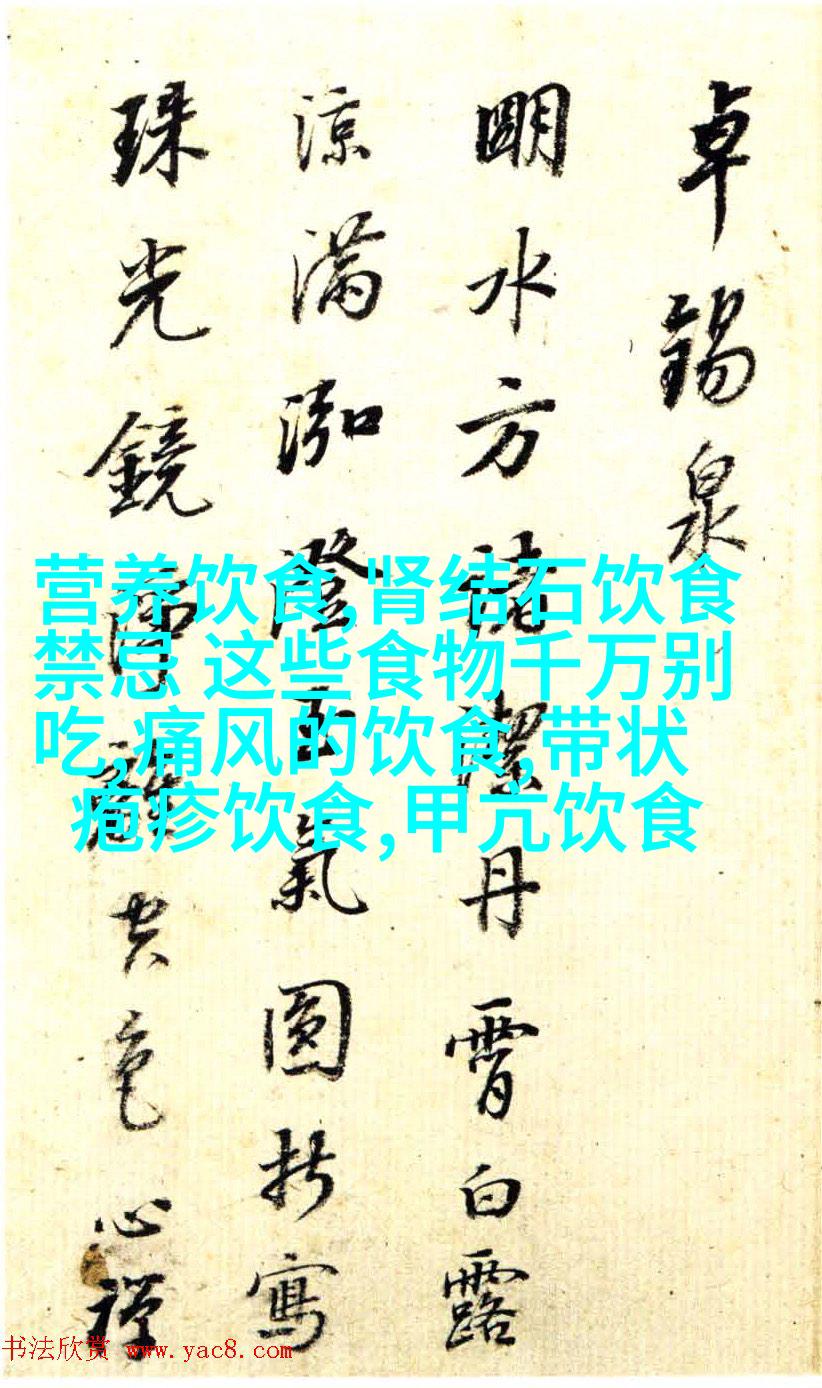 卓錫泉
朙水方諸潔丹霄白露
涼滿泓澄玉氣圓折寫
珠光鏡離空色心禪
营养饮食,肾结石饮食
禁忌 这些食物千万别
吃,痛风的饮食,带状
疱疹饮食,甲亢饮食
书法欣赏 www.yac8.com